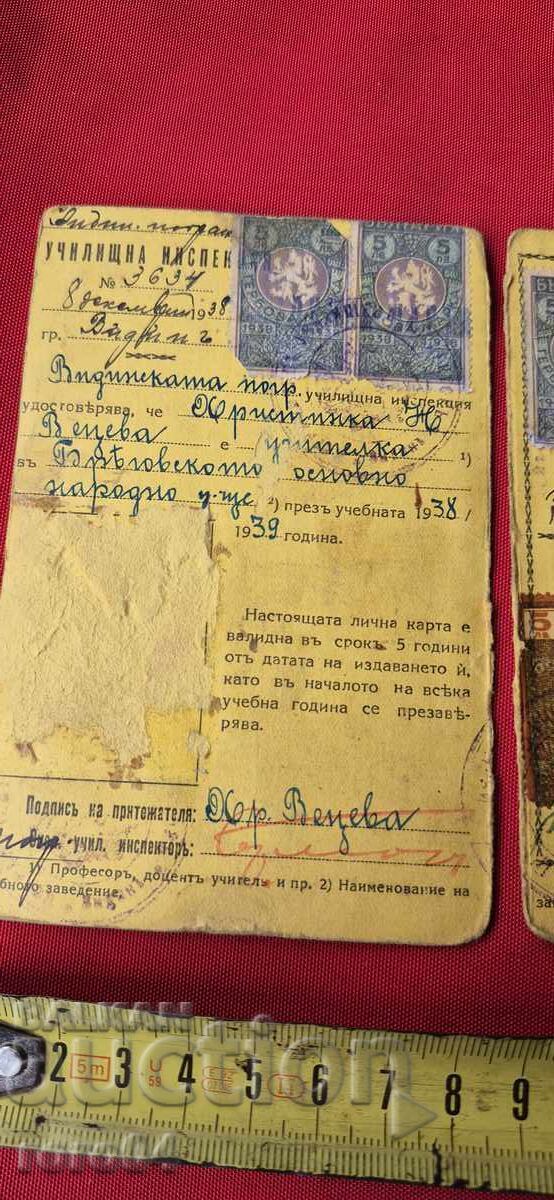 УЧИЛИЩНА ИНСПЕК
№ 3634
8 декемврий 1938
гр. Видинъ
Видинската погр. училищна инспекция
удостовѣрява, че Христинка Н
Вецева е учителка 1)
въ Брѣговското основно
народно у-ще 2) презъ учебната 1938/
1939 година.
Настоящата лична карта е
валидна въ срокъ 5 години
отъ датата на издаването ѝ,
като въ началото на всѣка
учебна година се презавѣ-
рява.
Подпись на притежателя: Хр. Вецева
учил. инспекторъ:
1) Професоръ, доцент учитель и пр. 2) Наименование на
бното заведение.
5 лв 5 лв
1938 1938 1938
BALKAN
auction
2 5m 3 4 5 6 7 8 9